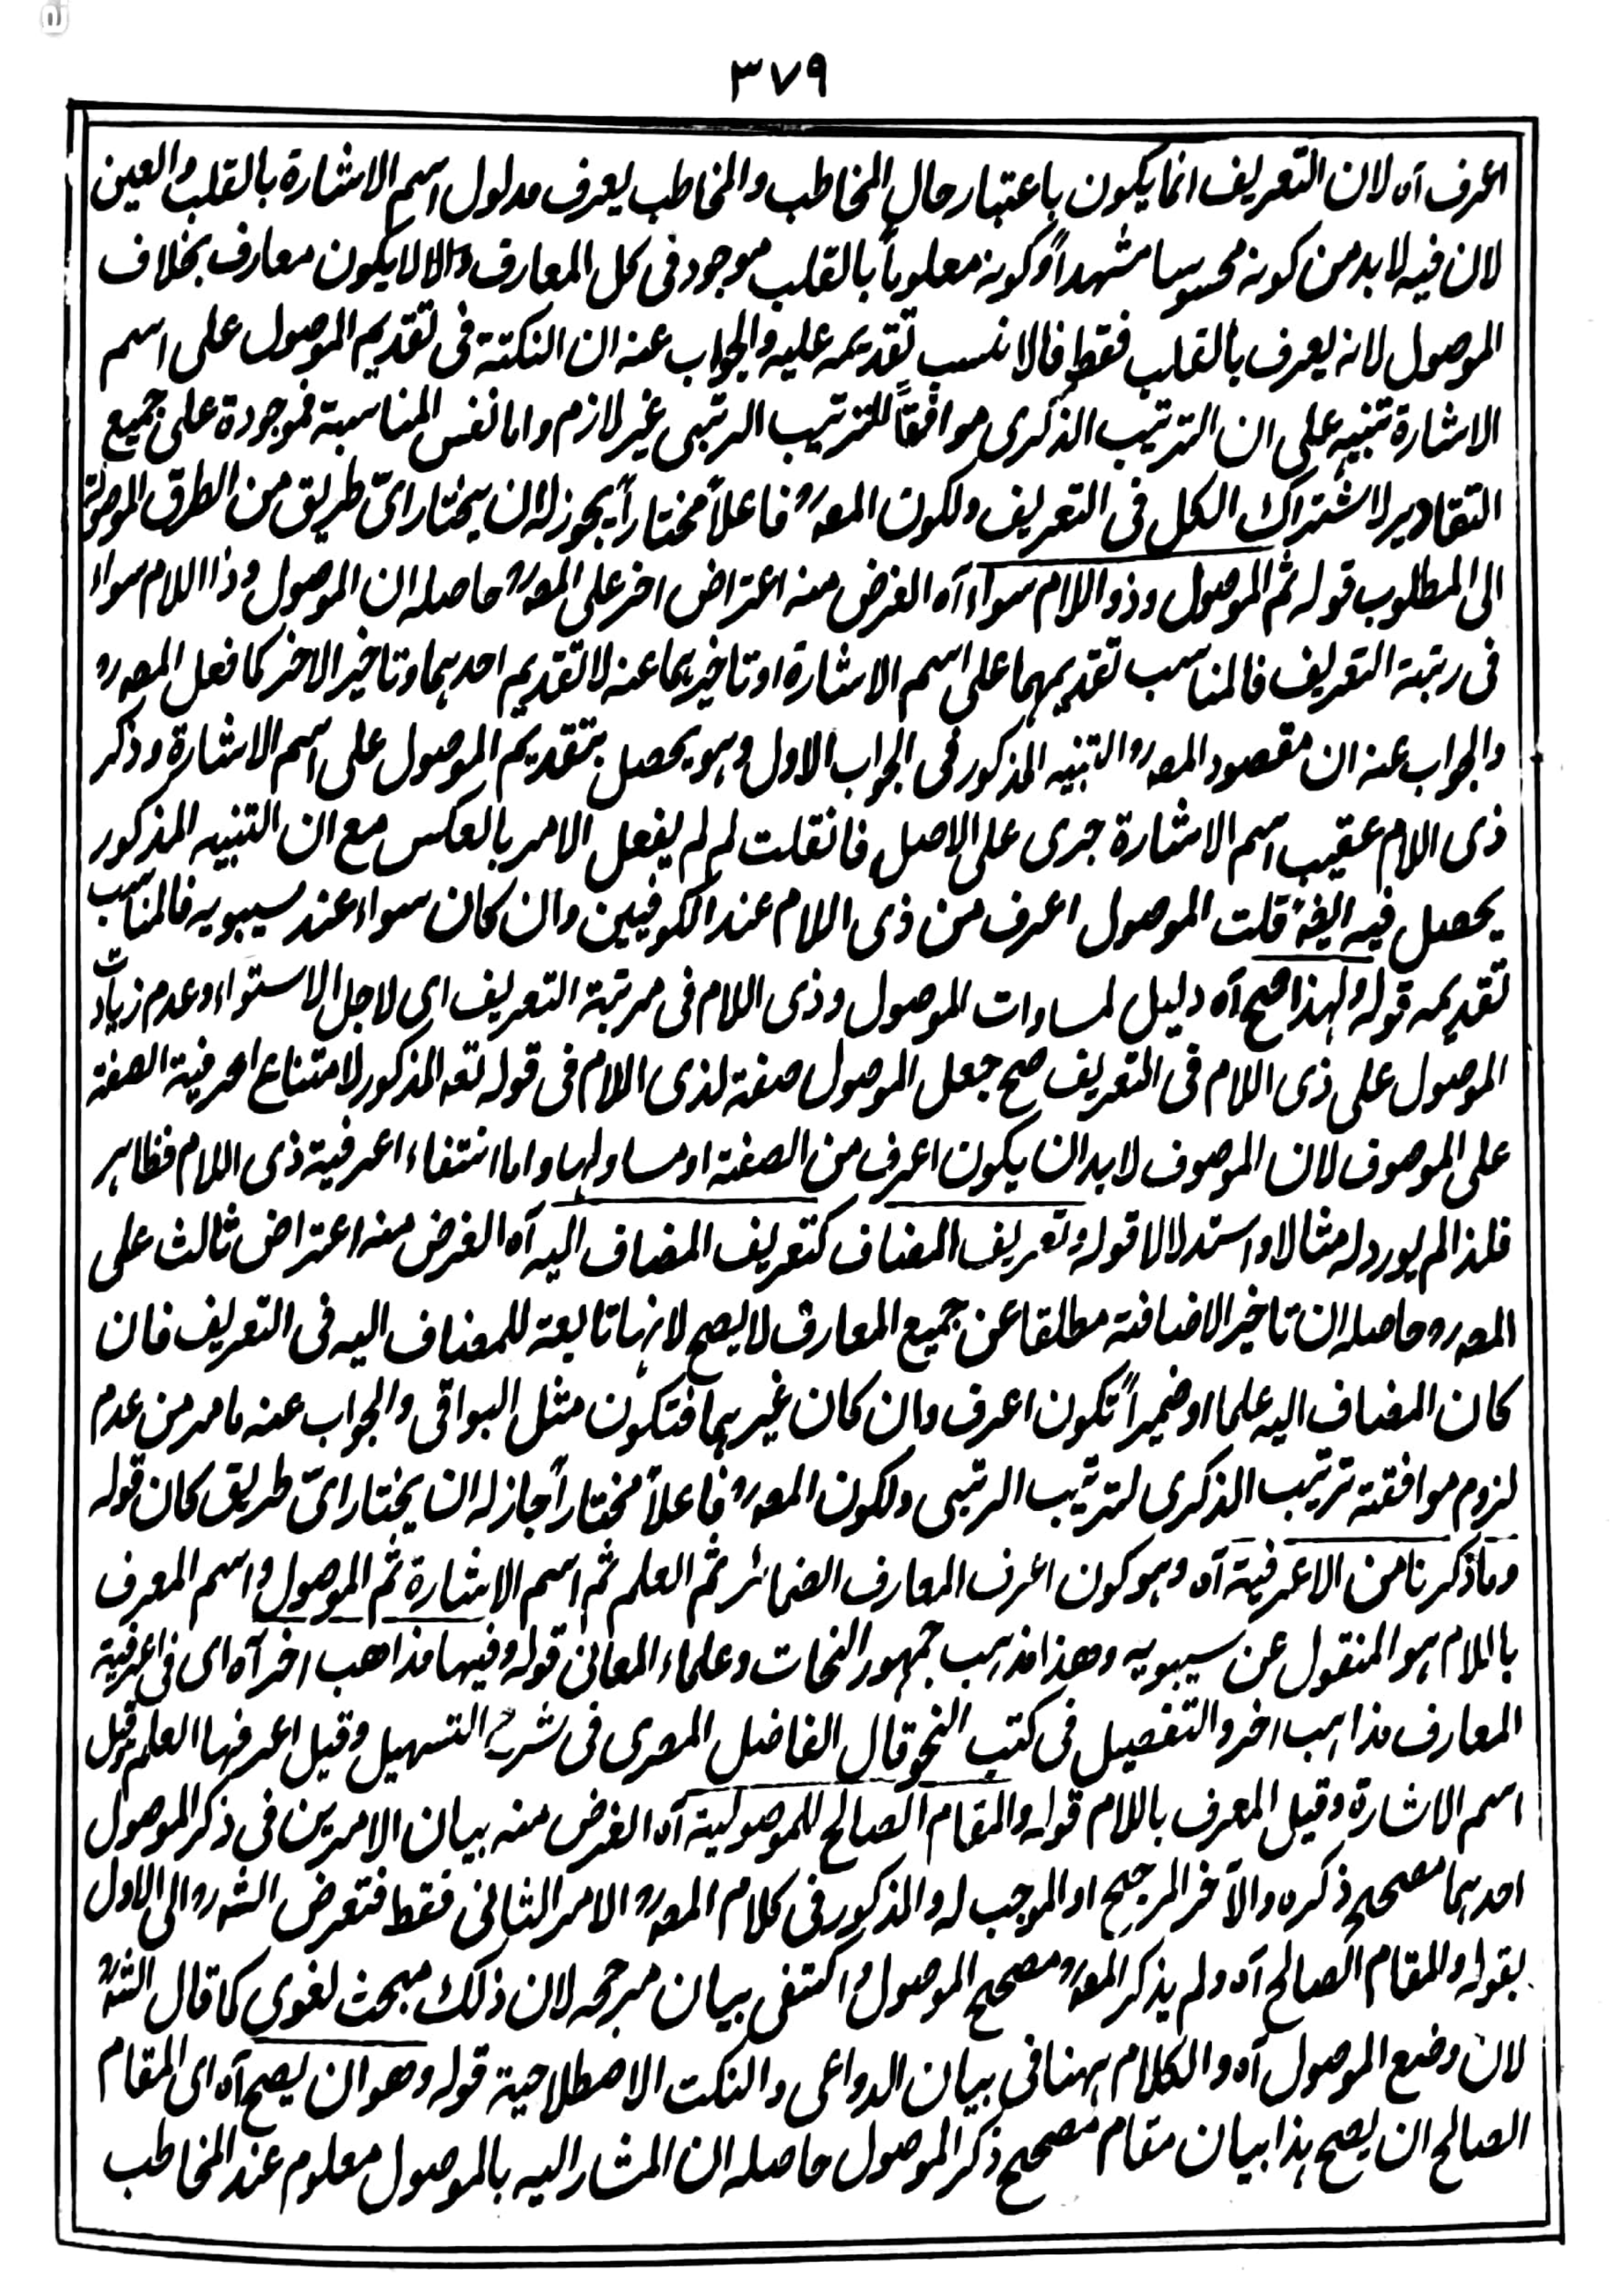 ٣٧٩
اعرف آه لان التعريف انما يكون باعتبار حال المخاطب والمخاطب يعرف مدلول اسم الاشارة بالقلب والعين
لان فيه لا بد من كونه محسوسا مشهداً وكونه معلوماً بالقلب موجود فى كل المعارف والا لا يكون معارف بخلاف
الموصول لانه يعرف بالقلب فقط فالانسب تقديمه عليه والجواب عنه ان النكتة فى تقديم الموصول على اسم
الاشارة تنبيه على ان الترتيب الذكرى موافقاً للترتيب الرتبى غير لازم واما نفس المناسبة فموجودة على جميع
التقادير لاشتراك الكل فى التعريف ولكون المصرہ فاعلاً مختاراً يجوز له ان يختار اىّ طريق من الطرق الموصلة
الى المطلوب قوله ثم الموصول وذو اللام سواء آه الغرض منه اعتراض اخر على المصرہ حاصله ان الموصول وذا اللام سواء
فى رتبة التعريف فالمناسب تقديمهما على اسم الاشارة او تاخيرهما عنه لا تقديم احدهما وتاخير الاخر كما فعل المصرہ
والجواب عنه ان مقصود المصرہ التنبيه المذكور فى الجواب الاول وهو يحصل بتقديم الموصول على اسم الاشارة وذكر
ذى اللام عقيب اسم الاشارة جرى على الاصل فانقلت لم لم يفعل الامر بالعكس مع ان التنبيه المذكور
يحصل فيه ايضہ قلت الموصول اعرف من ذى اللام عند الكوفيين وان كان سواء عند سيبويه فالمناسب
تقديمه قوله ولهذا صح آه دليل لمساوات الموصول وذى اللام فى مرتبة التعريف اى لاجل الاستواء وعدم زيادت
الموصول على ذى اللام فى التعريف صح جعل الموصول صفة لذى اللام فى قوله تعہ المذكور لامتناع اعرفية الصفة
على الموصوف لان الموصوف لا بد ان يكون اعرف من الصفة او مساو لها واما انتفاء اعرفية ذى اللام فظاهر
فلذا لم يورد له مثالا واستدلالا قوله وتعريف المضاف كتعريف المضاف اليه آه الغرض منه اعتراض ثالث على
المصرہ وحاصله ان تاخير الاضافة مطلقا عن جميع المعارف لا يصح لانها تابعة للمضاف اليه فى التعريف فان
كان المضاف اليه علما او ضميراً تكون اعرف وان كان غيرهما فتكون مثل البواقى والجواب عنه ما مر من عدم
لزوم موافقته ترتيب الذكرى لترتيب الرتبى ولكون المصرہ فاعلاً مختاراً جاز له ان يختار اىّ طريق كان قوله
وما ذكرنا من الاعرفية آه وهو كون اعرف المعارف الضمائر ثم العلم ثم اسم الاشارة ثم الموصول واسم المعرف
باللام هو المنقول عن سيبويه وهذا مذهب جمهور النحات وعلماء المعانى قوله وفيها مذاهب اخر آه اى فى اعرفية
المعارف مذاهب اخر والتفصيل فى كتب النحو قال الفاضل المصرى فى شرح التسهيل وقيل اعرفها العلم وقيل
اسم الاشارة وقيل المعرف باللام قوله والمقام الصالح للموصولية آه الغرض منه بيان الامرين فى ذكر الموصول
احدهما مصحح ذكره والآخر المرجح او الموجب له والمذكور فى كلام المصرہ الامر الثانى فقط فتعرض الشرہ الى الاول
بقوله وللمقام الصالح آه ولم يذكر المصرہ مصحح الموصول واكتفى ببيان مرجحه لان ذلك مبحث لغوى كما قال الشرہ
لان وضع الموصول آه والكلام ههنا فى بيان الدواعى والنكت الاصطلاحية قوله وهو ان يصح آه اى المقام
الصالح ان يصح هذا بيان مقام مصحح ذكر الموصول حاصله ان المشار اليه بالموصول معلوم عند المخاطب